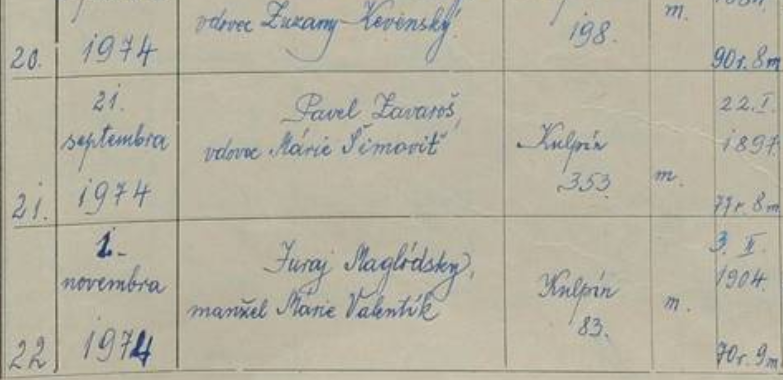 vdovec Zuzany Kevenský.
198.
m.
20.
1974
90r. 8m
21.
septembra
1974
21.
Pavel Zavaroš,
vdovec Márie Šimovič
Kulpín
353
m.
22. I.
1897
77r. 8m
1.
novembra
1974
22
Juraj Maglódsky,
manžel Márie Valentík
Kulpín
83.
m.
3. II.
1904.
70r. 9m